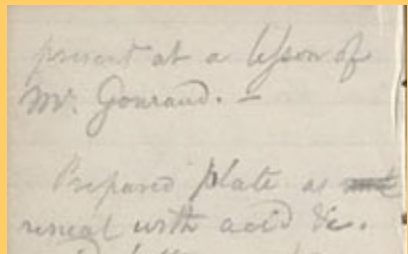 present at a lesson of
Mr. Gouraud. –
Prepared plate as
usual with acid &c.